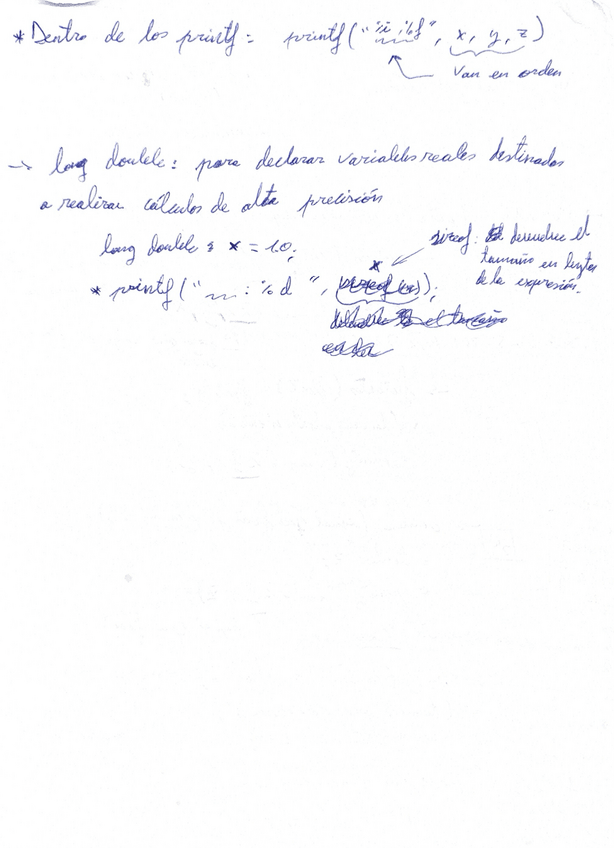 * Dentro de los printf: printf("%i %f", x, y, z)
Van en orden
→ long double: para declarar variables reales destinados
a realizar cálculos de alta precisión
long double x = 1.0;
* sizeof: devuelve el
tamaño en bytes
de la expresión.
* printf(" : %d ", sizeof(x));